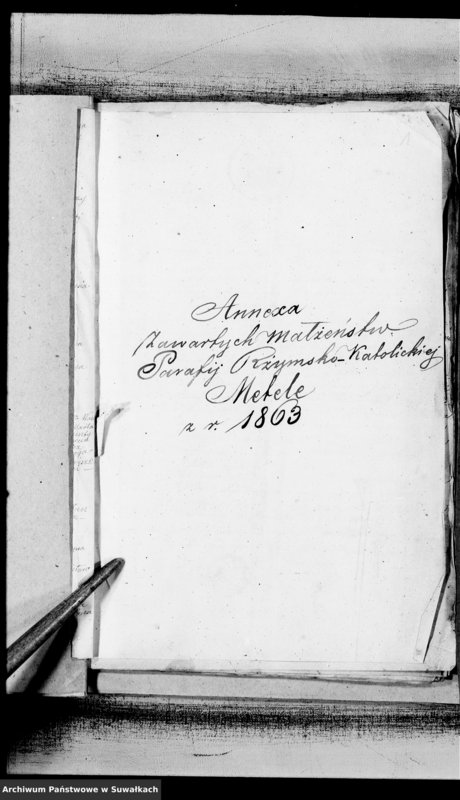 Annexa
Zawartych Małżeństw
Parafij Rzymsko-Katolickiej
Metele
z r. 1863
Archiwum Państwowe w Suwałkach